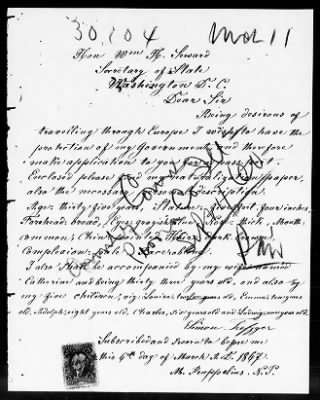 30,204 Mar 11
Hon. Wm H. Seward
Secretary of State
Washington D. C.
Dear Sir
Being desirous of
travelling through Europe I wish to have the
protection of my Government and therefore
make application to you for a
Enclosed please find my naturalization paper,
also the necessary description.
Age: thirty five years, Stature: five feet four inches
Forehead: broad, Eyes: Nose: thick, Mouth:
common, Chin: pointed, Hair: dark brown,
Complexion: pale, Face: oblong.
I also shall be accompanied by my wife named
Catherine and being thirty three years old, and also by
my five children, viz: Louise, twelve years old, Emma, ten years
old, Adolph, eight years old, Charles, five years old and Ludwig one year old.
Simon
Subscribed and sworn to before me
this 9th day of March A. D. 1867.
M. N. P.